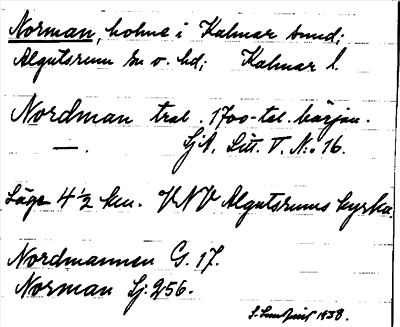 Norman, holme i Kalmar sund;
Algutsrum sn o. hd; Kalmar l.
Nordman trol. 1700-tal. början.
—. Sjk. Litt. T. N:o 16.
Läge 4 ½ km. VNV Algutsrums kyrka
Nordmannen G. 17.
Norman Sj. 256.
1938.